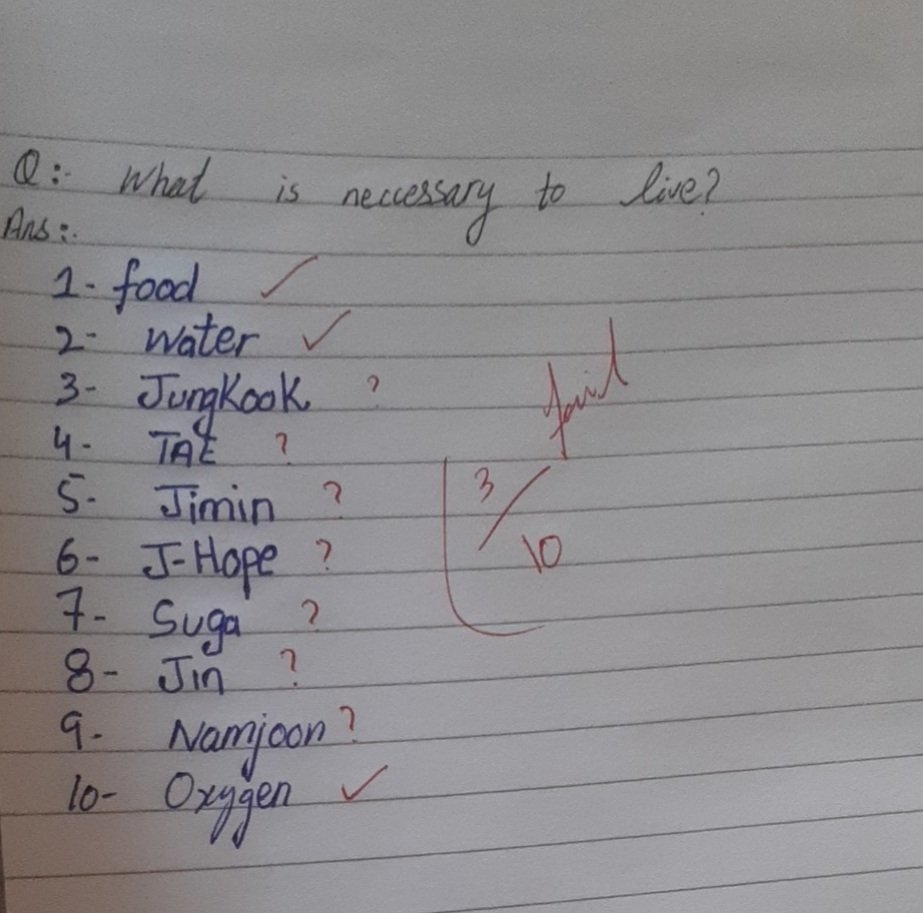 Q:- What is neccessary to live?
Ans:-
1- food ✓
2- water ✓
3- JungKook ?
4- TAE ?
5- Jimin ?
6- J-Hope ?
7- Suga ?
8- Jin ?
9- Namjoon ?
10- Oxygen ✓
fail
3/10